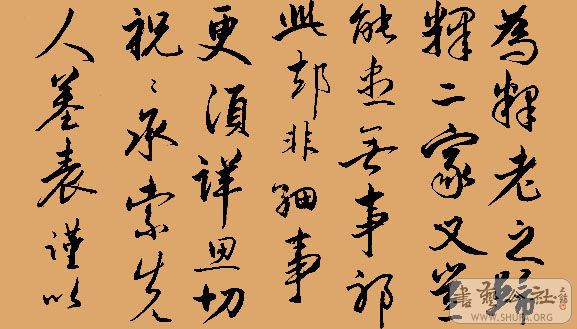 為釋老之歸
釋二家又豈
能盡無事耶
此却非細事
更須詳思切
祝〻承索先
人墓表謹以
書藝公社
WWW.SHUFA.ORG